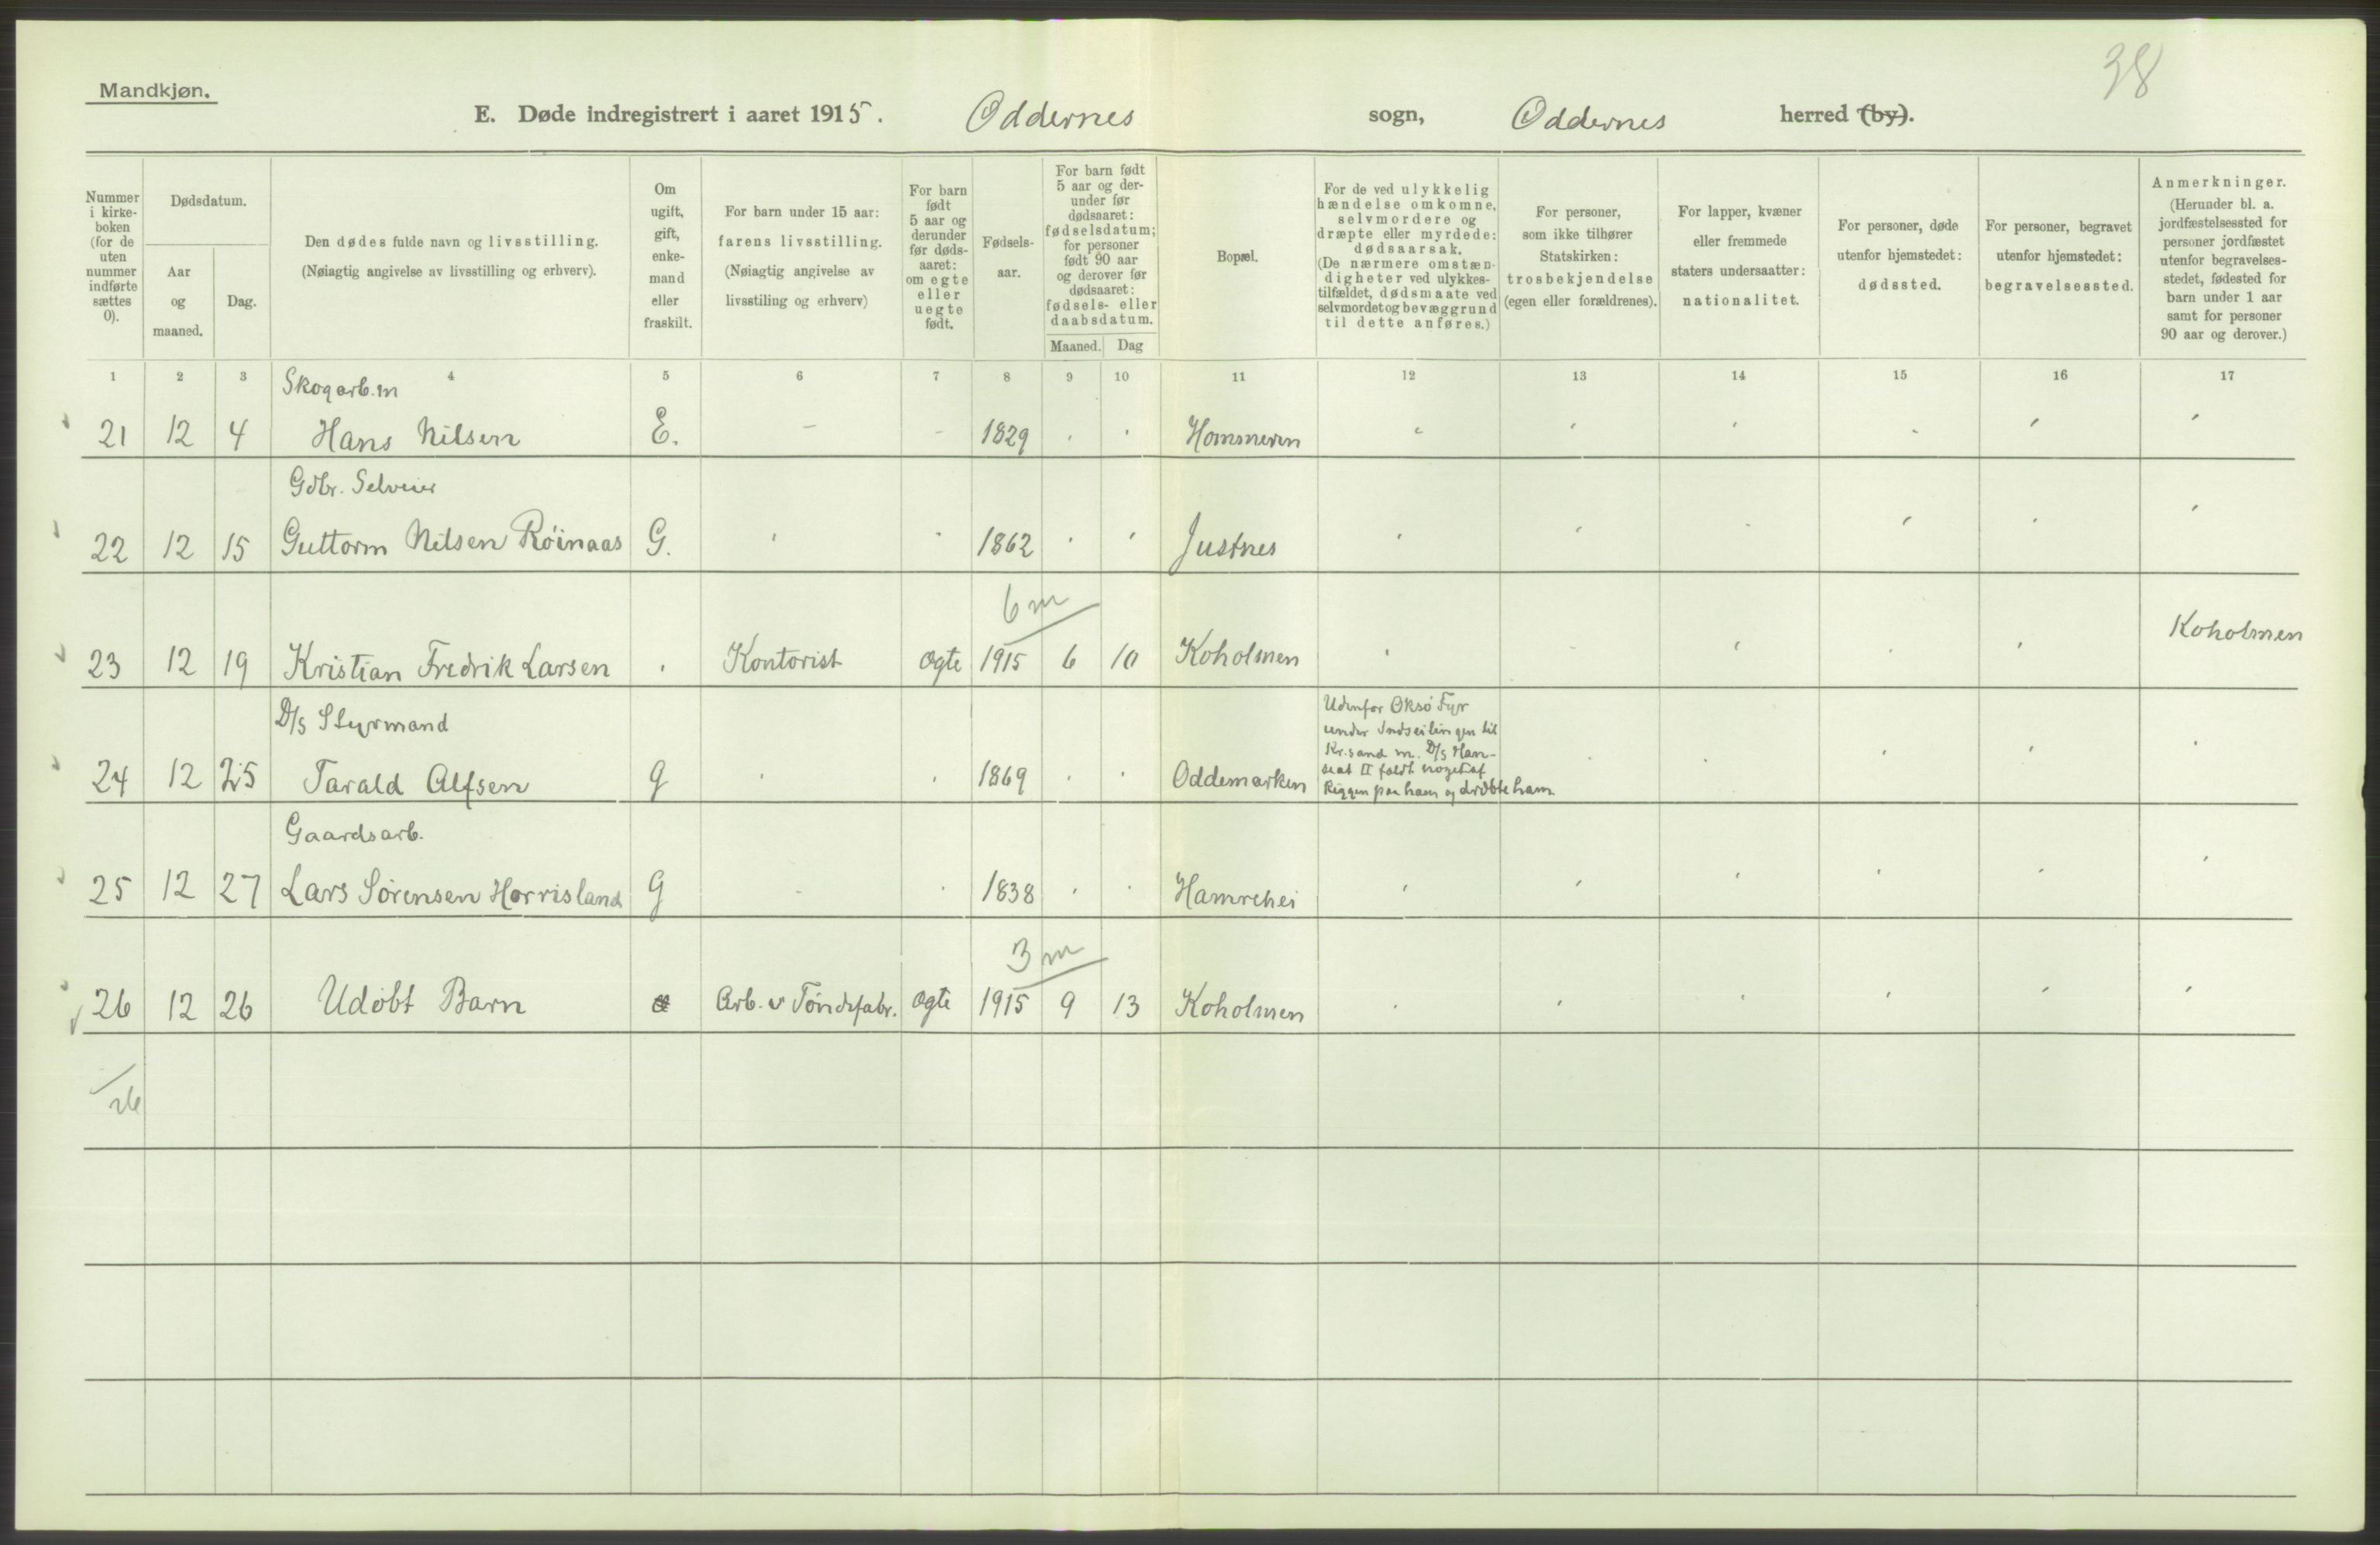 38
Mandkjøn.
E. Døde indregistrert i aaret 1915. Oddernes sogn, Oddernes herred (by).
Nummer i kirke-boken (for de uten nummer indførte sættes 0).
Dødsdatum.
Aar og maaned.
Dag.
Den dødes fulde navn og livsstilling.
(Nøiagtig angivelse av livsstilling og erhverv).
Om ugift, gift, enke-mand eller fraskilt.
For barn under 15 aar: farens livsstilling.
(Nøiagtig angivelse av livsstiling og erhverv)
For barn født 5 aar og derunder før døds-aaret: om egte eller uegte født.
Fødsels-aar.
For barn født 5 aar og der-under før dødsaaret: fødselsdatum; for personer født 90 aar og derover før dødsaaret: fødsels- eller daabsdatum.
Maaned. Dag
Bopæl.
For de ved ulykkelig hændelse omkomne, selvmordere og dræpte eller myrdede: dødsaarsak.
(De nærmere omstæn-digheter ved ulykkes-tilfældet, dødsmaate ved selvmordet og bevæggrund til dette anføres.)
For personer, som ikke tilhører Statskirken: trosbekjendelse (egen eller forældrenes).
For lapper, kvæner eller fremmede staters undersaatter: nationalitet.
For personer, døde utenfor hjemstedet: dødssted.
For personer, begravet utenfor hjemstedet: begravelsessted.
Anmerkninger.
(Herunder bl. a. jordfæstelsessted for personer jordfæstet utenfor begravelses-stedet, fødested for barn under 1 aar samt for personer 90 aar og derover.)
1 2 3 4 5 6 7 8 9 10 11 12 13 14 15 16 17
Skogarb.m
21 12 4 Hans Nilsen E. – – 1829 Homsneven
Gdbr. Selveier
22 12 15 Guttorm Nilsen Röinaas G. 1862 Justnes
6 m
23 12 19 Kristian Fredrik Larsen Kontorist Ogte 1915 6 10 Koholmen Koholmen
D/s Styrmand
24 12 25 Tarald Alfsen g 1869 Oddemarken
Udenfor Oksö Fyr
under Indseilingen til
Kr.sand m. D/s Han-
seat II faldt noget af
Riggen paa ham og dræbte ham
Gaardsarb.
25 12 27 Lars Sörensen Horrisland g 1838 Hamrehei
3 m
26 12 26 Udöbt Barn Arb. v Töndefabr. Ogte 1915 9 13 Koholmen
26